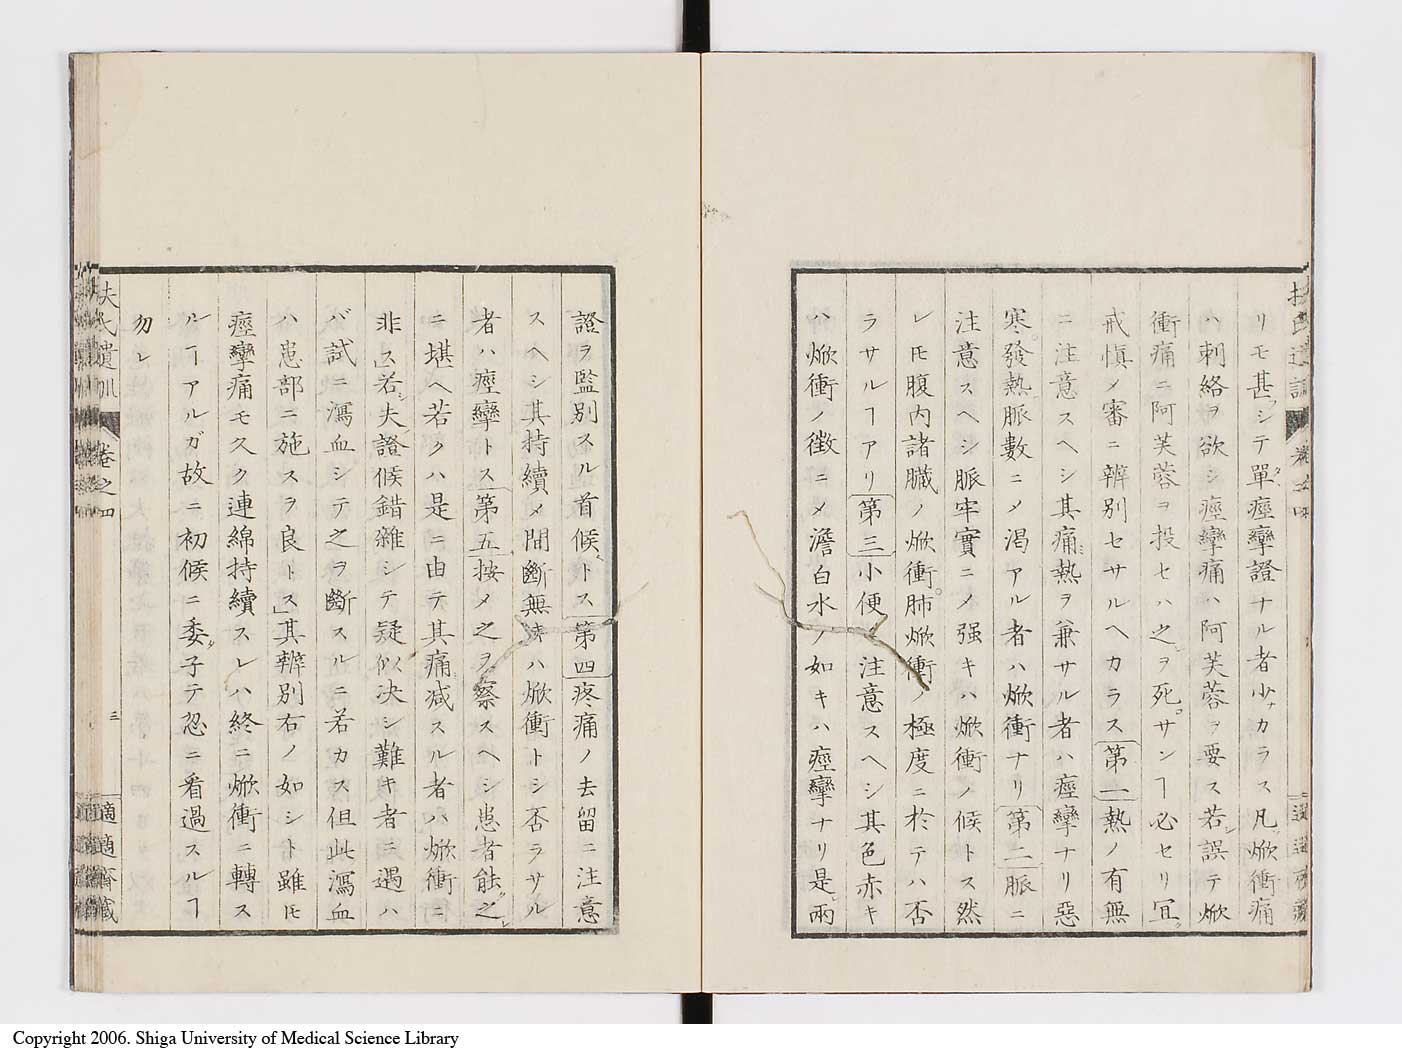 リモ甚シテ單痙攣證ナル者少カラス凡焮衝痛
ハ刺絡ヲ欲シ痙攣痛ハ阿芙蓉ヲ要ス若誤テ焮
衝痛ニ阿芙蓉ヲ投セハ之ヲ死サンヿ必セリ宜
戒愼〆審ニ辨別セサルヘカラス第一熱ノ有無
ニ注意スヘシ其痛熱ヲ兼サル者ハ痙攣ナリ惡
寒發熱脈數ニ〆渇アル者ハ焮衝ナリ第二脈ニ
注意スヘシ脈牢實ニ〆强キハ焮衝ノ候トス然
レ𪜈腹内諸臓ノ焮衝肺焮衝ノ極度ニ於テハ否
ラサルヿアリ第三小便ニ注意スヘシ其色赤キ
ハ焮衝ノ徴ニ〆澹白水ノ如キハ痙攣ナリ是兩
證ヲ監別スル首候トス第四疼痛ノ去留ニ注意
スヘシ其持續〆間斷無キハ焮衝トシ否ラサル
者ハ痙攣トス第五按〆之ヲ察スヘシ患者能之
ニ堪ヘ若クハ是ニ由テ其痛减スル者ハ焮衝ニ
非ス」若夫證候錯雜シテ疑似决シ難キ者ニ遇ハ
バ試ニ瀉血シテ之ヲ斷スルニ若カス但此瀉血
ハ患部ニ施スヲ良トス」其辨別右ノ如シト雖𪜈
痙攣痛モ久ク連綿持續スレハ終ニ焮衝ニ轉ス
ルヿアルガ故ニ初候ニ委子テ忽ニ看過スルヿ
勿レ
扶氏遺訓
卷之四
三
適適齋藏
Copyright 2006. Shiga University of Medical Science Library